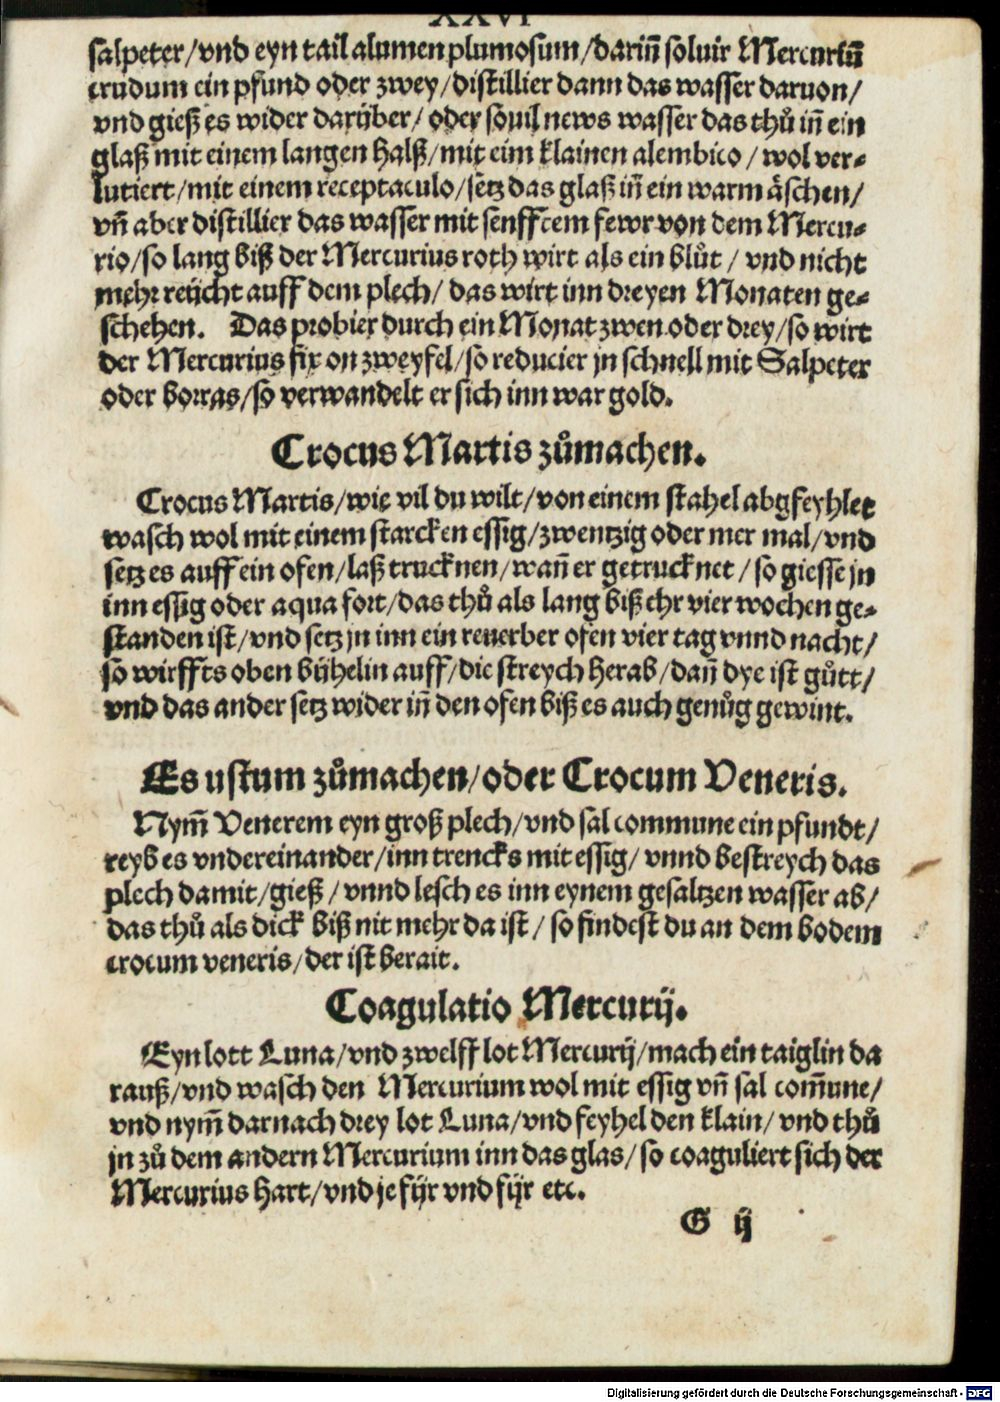 XXVI
salpeter/vnd eyn tail alumen plumosum/dariñ soluir Mercuriũ
crudum ein pfund oder zwey/distillier dann das wasser daruon/
vnd gieß es wider darüber/oder souil news wasser das thů iñ ein
glaß mit einem langen halß/mit eim klainen alembico/wol ver-
lutiert/mit einem receptaculo/setz das glaß iñ ein warm äschen/
vñ aber distillier das wasser mit senfftem fewr von dem Mercu-
rio/so lang biß der Mercurius roth wirt als ein blůt/vnd nicht
mehr reücht auff dem plech/das wirt inn dreyen Monaten ge-
schehen. Das probier durch ein Monat zwen oder drey/so wirt
der Mercurius fix on zweyfel/so reducier jn schnell mit Salpeter
oder borras/so verwandelt er sich inn war gold.
Crocus Martis zůmachen.
Crocus Martis/wie vil du wilt/von einem stahel abgfeyhlet
wasch wol mit einem starcken essig/zwentzig oder mer mal/vnd
setz es auff ein ofen/laß trucknen/wañ er getrucknet/so giesse jn
inn essig oder aqua fort/das thů als lang biß ehr vier wochen ge-
standen ist/vnd setz jn inn ein reuerber ofen vier tag vnnd nacht/
so wirffts oben bühelin auff/die streych herab/dañ dye ist gůtt/
vnd das ander setz wider iñ den ofen biß es auch genůg gewint.
Es ustum zůmachen/oder Crocum Veneris.
Nym̃ Venerem eyn groß plech/vnd sal commune ein pfundt/
reyb es vndereinander/inn trencks mit essig/vnnd bestreych das
plech damit/gieß/vnnd lesch es inn eynem gesaltzen wasser ab/
das thů als dick biß nit mehr da ist/so findest du an dem bodem
crocum veneris/der ist berait.
Coagulatio Mercurij.
Eyn lott Luna/vnd zwelff lot Mercurij/mach ein taiglin da
rauß/vnd wasch den Mercurium wol mit essig vñ sal com̃une/
vnd nym̃ darnach drey lot Luna/vnd feyhel den klain/vnd thů
jn zů dem andern Mercurium inn das glas/so coaguliert sich der
Mercurius hart/vnd je für vnd für etc.
G ij
Digitalisierung gefördert durch die Deutsche Forschungsgemeinschaft - DFG